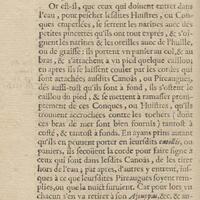 Or est-il, que ceux qui doivent entrer dans
l'eau, pour pescher lesdites Huistres, ou Con-
ques emperlées, se serrent les narines avec des
petites pincettes qu'ils ont tout exprés, & s'oi-
gnent les narines & les oreilles avec de l'huille,
ou de graisse: ils portent vn panier au col, & au
bras, & s'attachent à vn pied quelque caillou;
en apres ils se laissent couler par les cordes qui
sont attachées ausdits Canoás, ou Pireaugues,
dés aussi-tost qu'ils sont à fond, ils s'ostent le
caillou du pied, & se mettent à ramasser prom-
ptement de ces Conques, ou Huistres, qu'ils
trouvent accrochées contre les rochers (dont
ces bras de mer sont bien fournis) tantost à
costé, & tantost à fonds. En ayans prins autant
qu'ils en peuvent porter en leursdits ou pa-
niers, ils secoüent la corde pour faire signe à
ceux qui sont dans lesdits Canoás, de les tirer
hors de l'eau; pit apres, d'autres y entrent, jus-
ques à ce que leursdites Pireaugues soyent rem-
plies, ou que la nuict survient. Car pour lors vn
chacun s'en va retirer à son &c, & am-